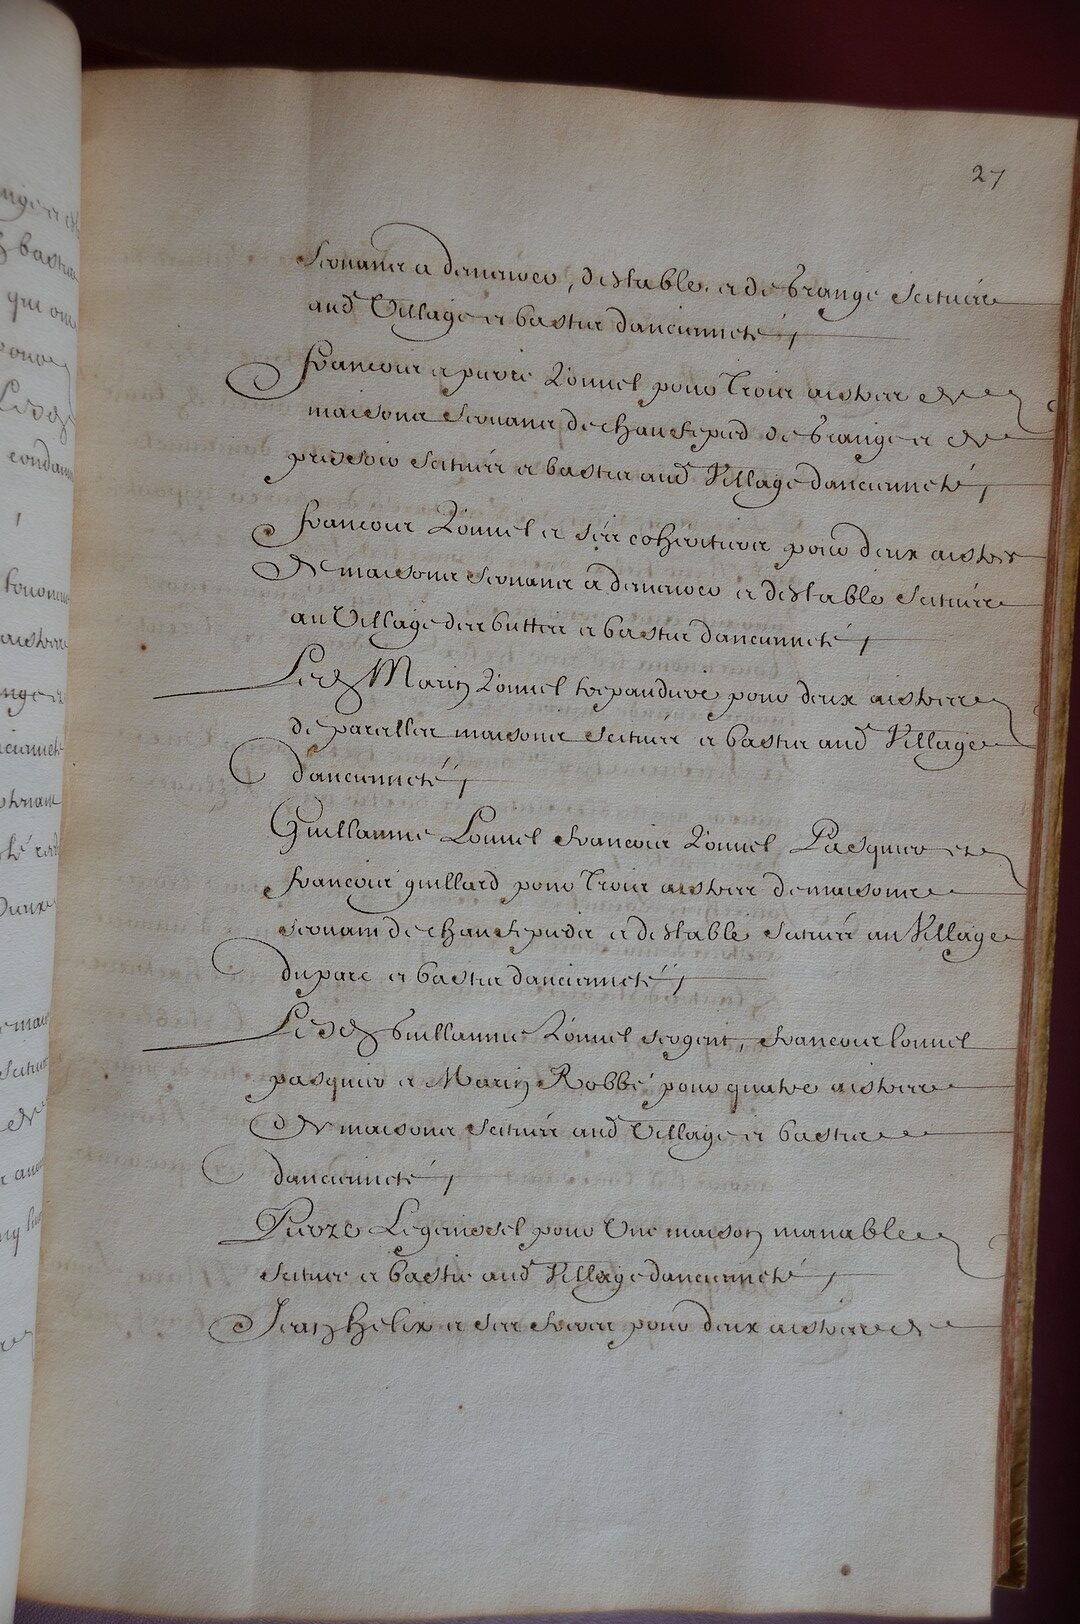 27
servans a demeurer, d'estable, et de Grange scituées
aud Village et basties d'ancienneté,
Francois et pierre Lonnel pour Trois aistres de
maisons servans de chaufepied de Grange et de
pressoir scitués et basties aud Village d'ancienneté,
Francois Lonnel et ses coheritiers pour deux aistres
de maisons servans a demeurer et d'estable scituées
au Village des buttes et basties d'ancienneté,
Led Marin Lonnel pour deux aistres
de pareilles maisons scitués et basties aud Village
d'ancienneté,
Guillaume Lonnel Francois Lonnel Pasquier et
Francois guillard pour Trois aistres de maisons
servans de chaufepieds et d'estable scitués au Village
du parc et basties d'ancienneté,
Lesd Guillaume Lonnel sergent, Francois Lonnel
pasquier et Marin Robbé pour quatre aistres
de maisons scitués aud Village et basties
d'ancienneté,
Pierre pour Une maison manable
scituée et bastie aud Village d'ancienneté,
Jean helix et ses freres pour deux aistres de